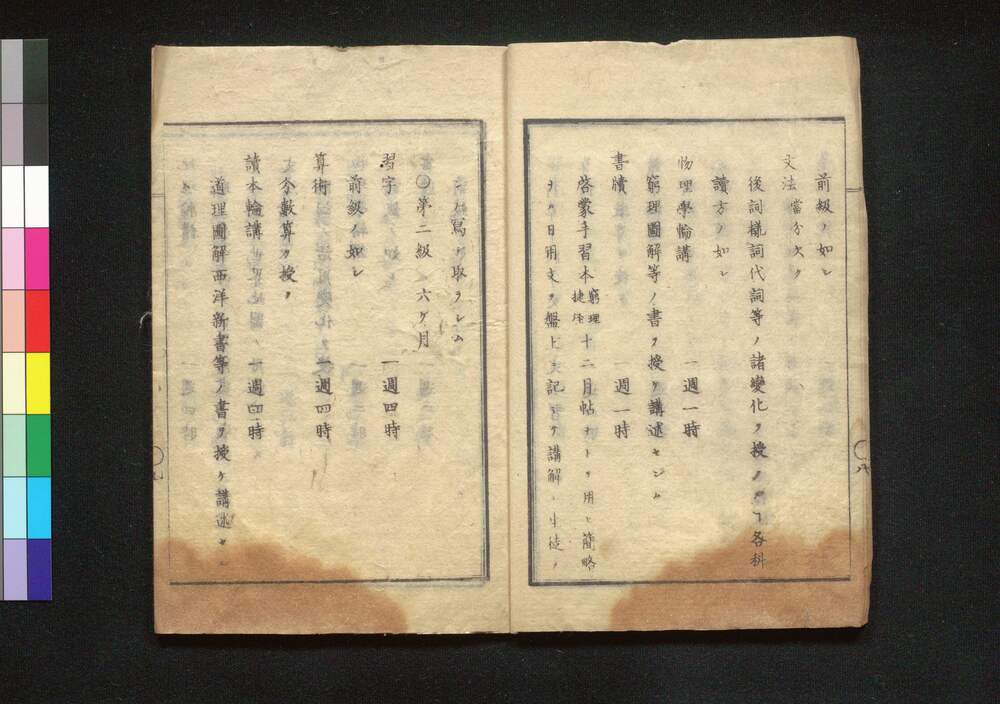 前級ノ如シ
文法 當分欠ク
後詞様詞代詞等ノ諸變化ヲ授ノヿ各科
讀方ノ如シ
物理學輪講 一週一時
窮理圖解等ノ書ヲ授ケ講述セシム
書牘 一週一時
啓蒙手習本 窮理捷径 十二月帖ナトヲ用ヒ簡略
ナル日用文ヲ盤上ニ記シテ講解シ生徒ノ
シテ寫シ取ラシム
○第二級 六ケ月
習字 一週四時
前級ノ如シ
算術 一週四時
分數算ヲ授ク
讀本輪講 一週四時
道理圖解西洋新書等ノ書ヲ授ケ講述セシ